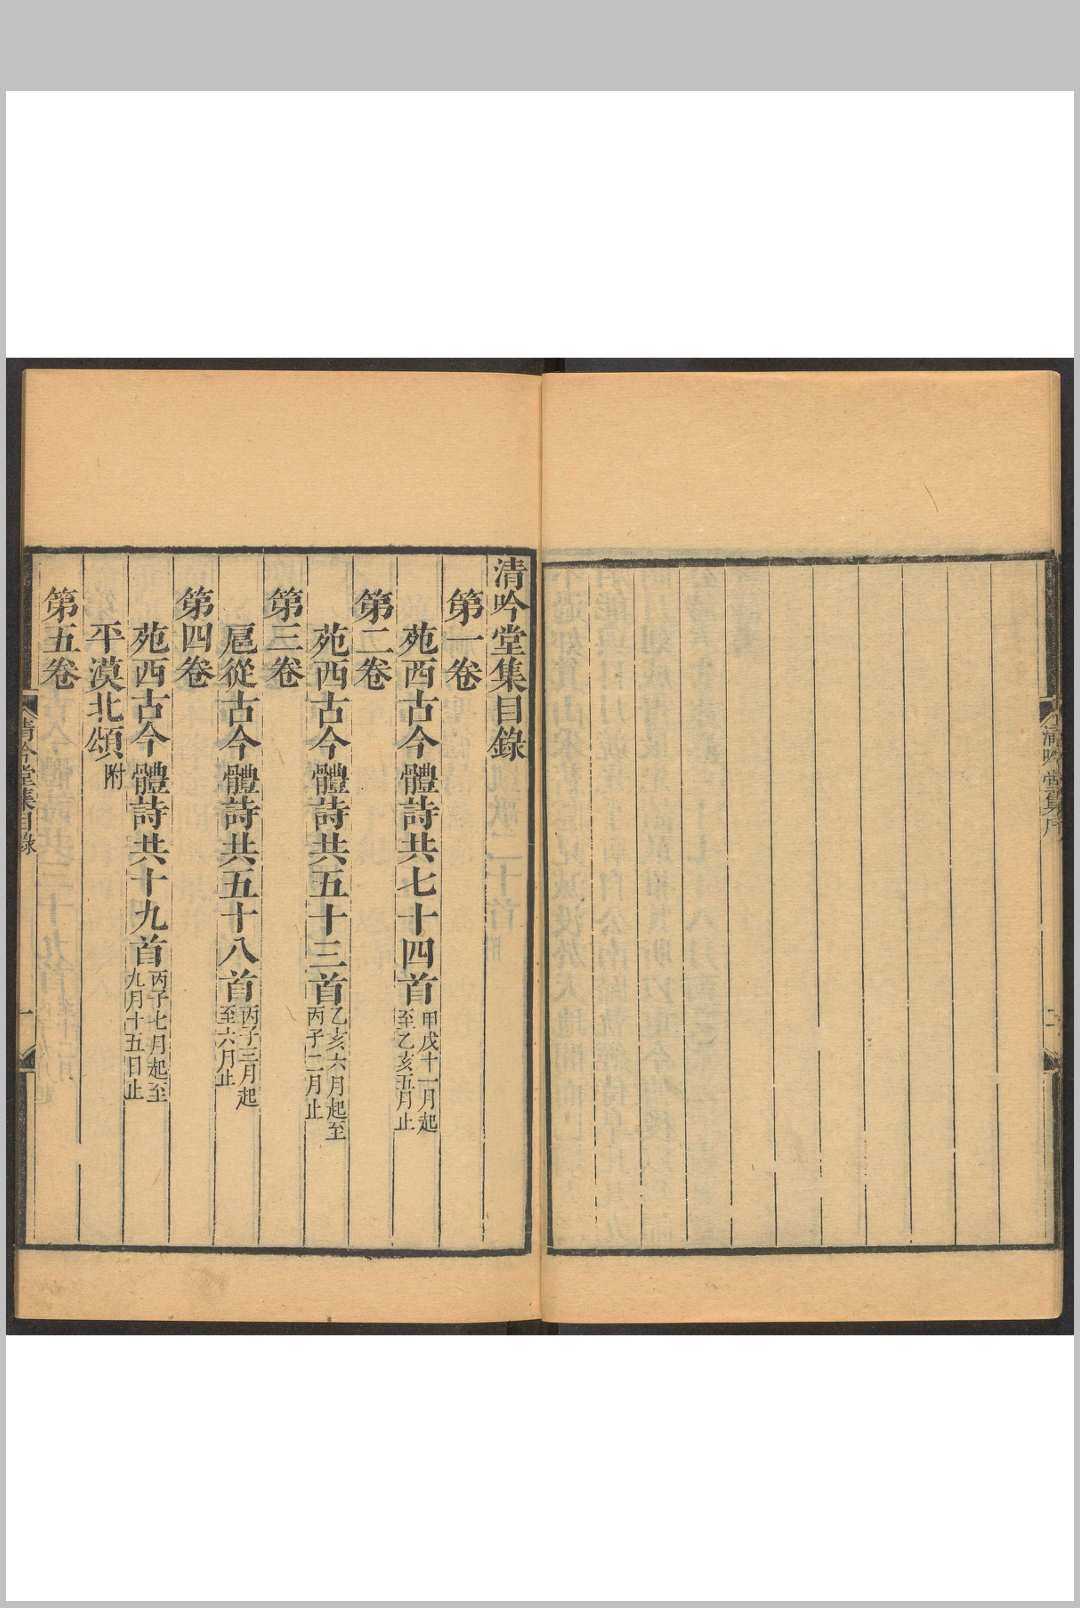 清吟堂集序
二
清吟堂集目錄
第一卷
苑西古今體詩共七十四首甲戌十一月起
至乙亥五月止
第二卷
苑西古今體詩共五十三首乙亥六月起至
丙子二月止
第三卷
扈從古今體詩共五十八首丙子三月起
至六月止
第四卷
苑西古今體詩共十九首丙子七月起至
九月十五日止
平漠北頌附
第五卷
清吟堂集目錄
一